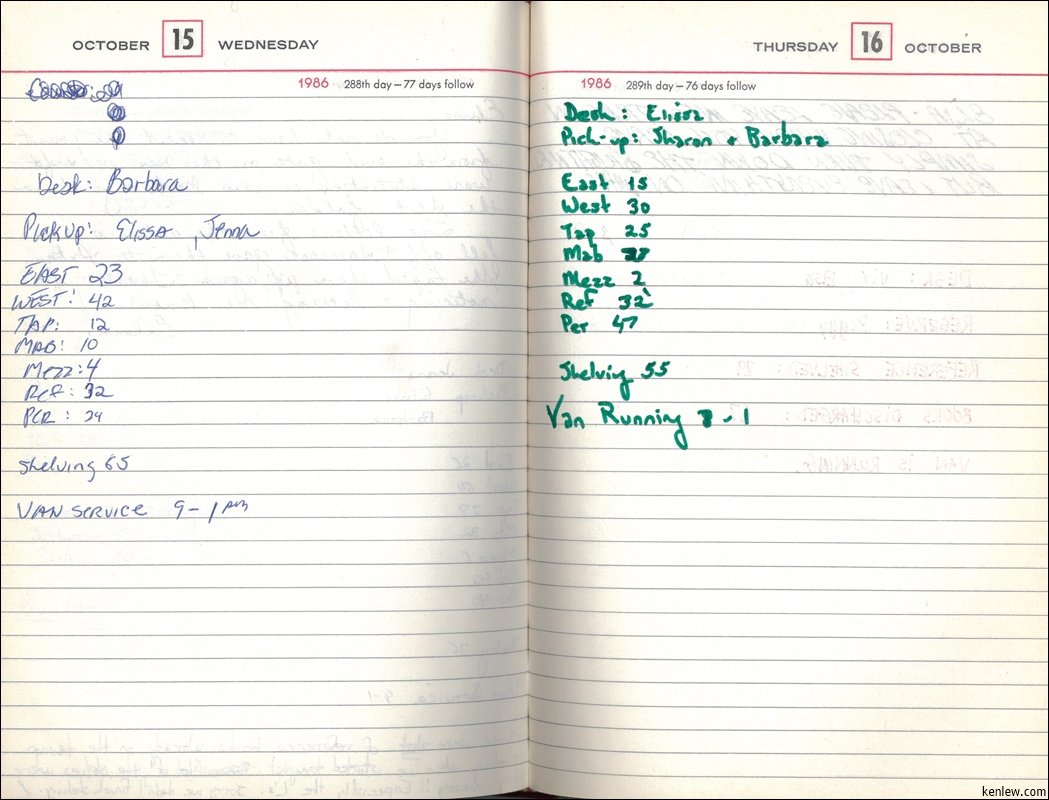 OCTOBER 15 WEDNESDAY
1986 288th day — 77 days follow
Desk: Barbara
Pick up: Elissa, Jenna
EAST 23
WEST: 42
TAP: 12
MAB: 10
Mezz: 4
Ref: 32
PER:
shelving 65
VAN SERVICE 9 - 1 PM
THURSDAY 16 OCTOBER
1986 289th day — 76 days follow
Desk: Elissa
Pick-up: Sharon + Barbara
East 15
West 30
Tap 25
Mab
Mezz 2
Ref 32
Per 47
Shelving 55
Van Running - 1
kenlew.com